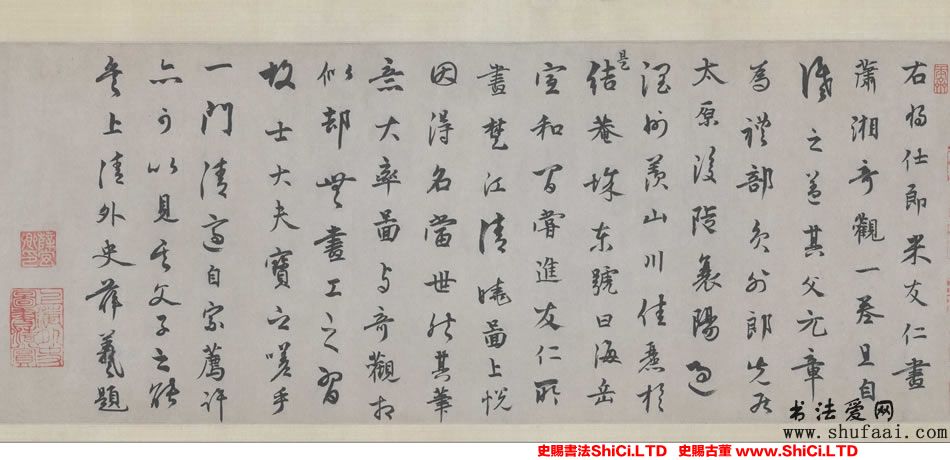 右將仕郎米友仁畫
瀟湘奇觀一卷且自
識之蓋其父元章
為禮部員外郎先居
太原後徙襄陽過
潤州羨山川佳麗於
是結菴城東號曰海岳
宣和間嘗進友仁所
畫楚江清曉圖上悅
因得名當世然其筆
意大率圖與奇觀相
似却無畫工之習
故士大夫寶之嗟乎
一門清適自家薦許
亦可以見其父子之能
矣上清外史薛羲題
书法爱网
www.shufaai.com
史賜書法ShiCi.LTD 史賜古董 www.ShiCi.LTD